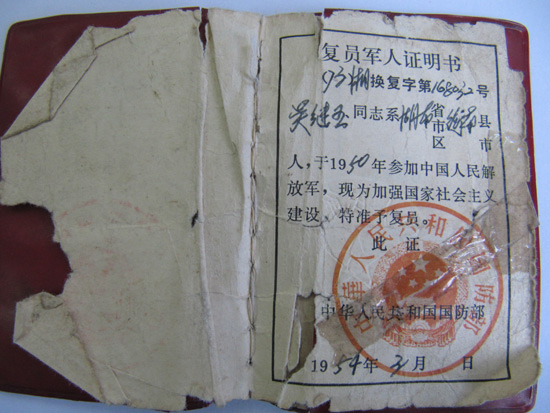 复员军人证明书
湖换复字第168032号
吴继 同志系湖南省市区 县市
人，于1950年参加中国人民解
放军，现为加强国家社会主义
建设，特准予复员。
此证
中华人民共和国国防部
1954年3月 日
中华人民共和国国防部